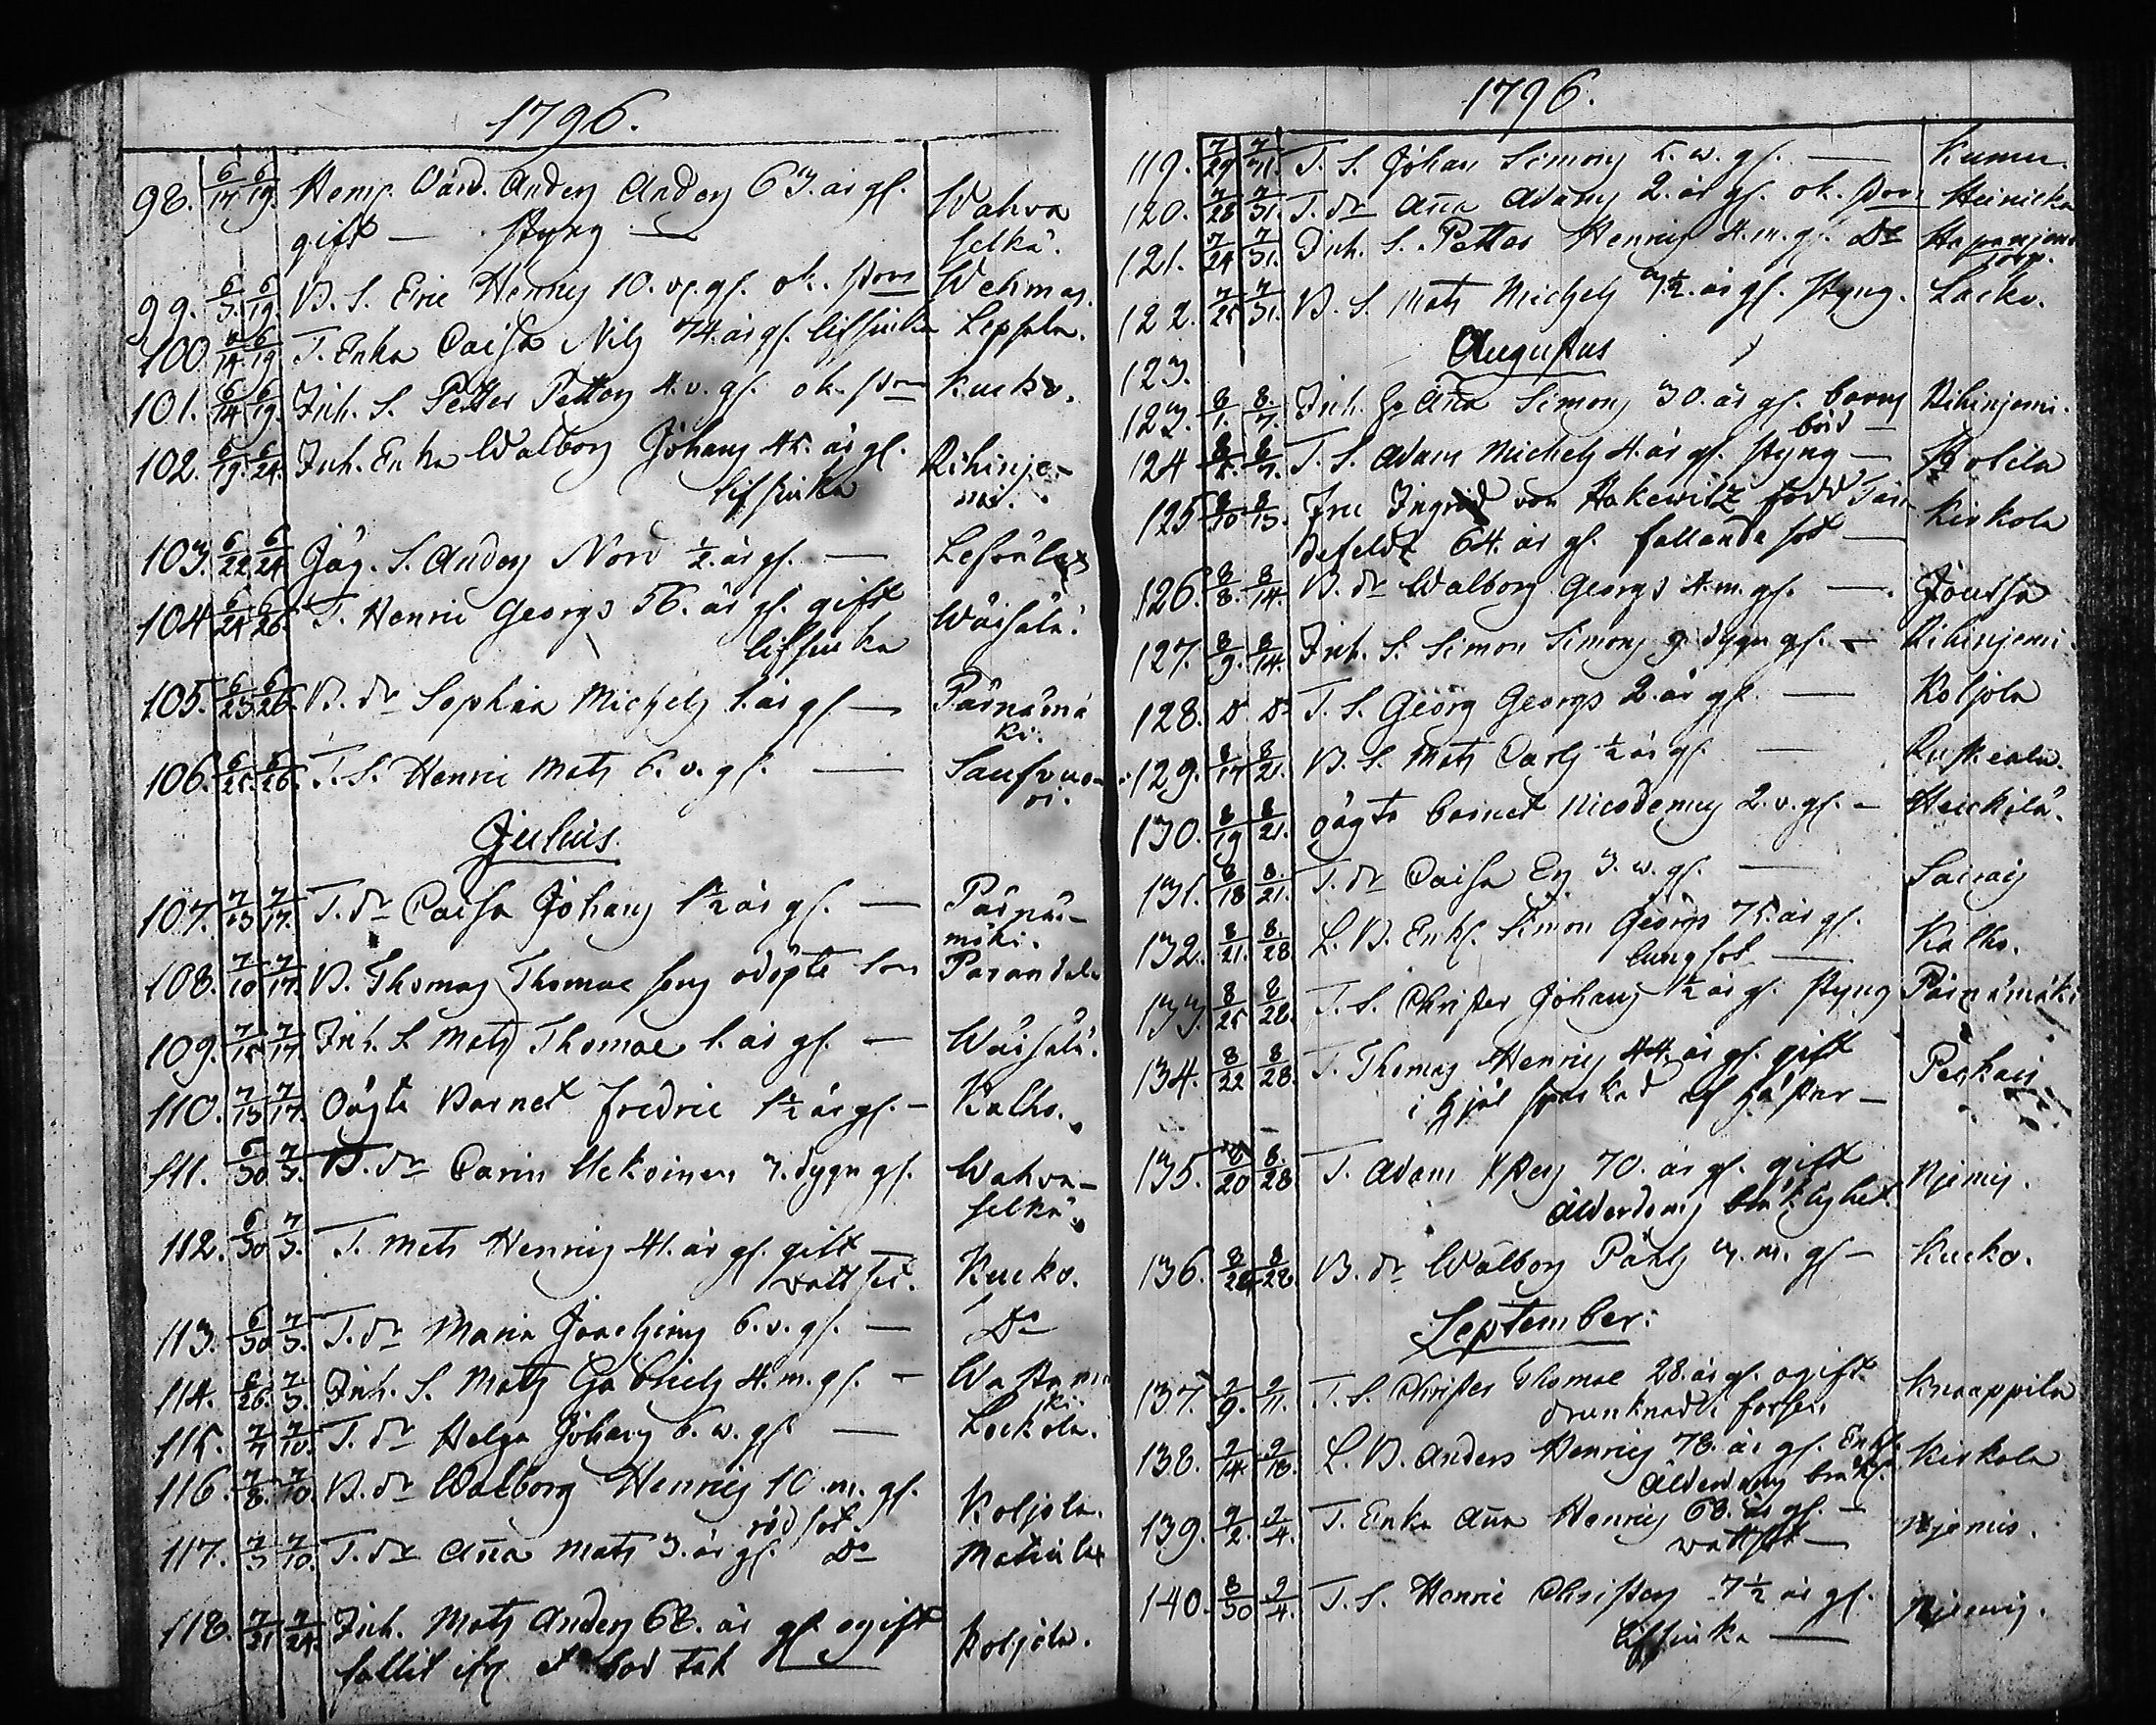 1796.
98. 6/17 6/19 Hemm. Vård. Anders Anders 63. år gl. Wahva
gift — styng — selkä.
99. 6/3. 6/19 B. S. Eric Henrics 10. v. gl. ok. Wehmas.
100. 6/14. 6/19 T. Enka Caisa Nils 74. år gl. lifsiuka Leppälä.
101. 6/14 6/19. Inh. S. Petter Petters 4. v. gl. ok. Kucko.
102. 6/19. 6/24. Inh. Enka Walborg Johans 45. år gl. Riihinje-
lifsiuka mi.
103. 6/22 6/24 Jäg. S. Anders Nord ½. år gl. —
104 6/24 6/26. T. Henric Georgs 56. år gl. gift Wäisälä.
lifsiuka
105. 6/23. 6/26. B. dr Sophia Michels 1. år gl. — Pärnämä
ki.
106. 6/25. 6/26. T. S. Henric Mats 6. v. gl. —
Julius.
107. 7/13 7/17. T. dr Caisa Johans 1½ år gl. — Pärnä-
mäki.
108. 7/10 7/17. B. Thomas Thomae sons odöpte son
109. 7/15 7/17. Inh. S. Mats Thomae 1. år gl. — Wäisälä.
110. 7/13 7/17. Oägta Barnet Fredric 1½ år gl. — Kalho.
111. 6/30 7/3. B. dr Carin Uckoinen 7. dygn gl. Wahva-
selkä.
112. 6/30 7/3. T. Mats Henrics 41. år gl. gift —
vattsot. Kucko.
113. 6/30 7/3. T. dr Maria Joachims 6. v. gl. — Do
114. 6/26. 7/3. Inh. S. Mats Gabriels 4. m. gl. —
115. 7/7 7/10. T. dr Helga Johans 6. w. gl. — Lockola.
116. 7/8. 7/10. B. dr Walborg Henrics 10. m. gl.
rödsot. Koljola.
117. 7/3 7/10. T. dr Aña Mats 3. år gl. Do
118. 7/21 7/24. Inh. Mats Anders 68. år gl. ogift
fallit Koljola.
1796.
119. 7/29 7/31. T. S. Johan Simons 5. w. gl. — Kumu.
120. 7/28 7/31. T. dr Aña Adams 2. år gl. ok. Heinicka
121. 7/24 7/31. Inh. S. Petter Henrics 4. m. gl. Do
122. 7/25 7/31. B. S. Mats Michels 7½. år gl. styng. Lacko.
Augustus
123.
123. 8/1. 8/7. Inh. Aña Simons 30. år gl. barns Riihinjemi.
börd —
124 8/5. 8/7. T. S. Adam Michels 4. år gl. styng —
125 8/10 8/13. Fru Ingrid von Hakewitz född
64. år gl. fallande sot — Kirkola
126. 8/8. 8/14. B. dr Walborg Georgs 4. m. gl. —
127. 8/9. 8/14. Inh. S. Simon Simons 9. dygn gl. — Riihinjemi.
128. Do. Do T. S. Georg Georgs 2. år gl. — Koljola
129. 8/17 8/21. B. S. Mats Carls ½ år gl. — Ruskeala.
130. 8/19 8/21. oägta barnet Nicodemus 2. v. gl. — Heickilä.
131. 8/18 8/21. T. dr Caisa Ers 3. w. gl. —
132. 8/21. 8/28 L. B. Enkl. Simon Georgs 75. år gl.
lungsot — Kalho.
133. 8/25 8/28. T. S. Christer Johans 1½ år gl. styng Pärnämäki
134. 8/22 8/28. T. Thomas Henrics 44. år gl. gift
i hjäl sparkad af hästar —
135. 8/20 8/28 T. Adam 70. år gl. gift
Ålderdoms bräklighet. Njemis.
136. 8/24 8/28. B. dr Walborg Påhls 3. m. gl — Kucko.
September:
137. 9/9. 9/11. T. S. Christer Thomae 28. år gl. ogift
drunknade Knaappila
138. 9/14 9/18. L. B. Anders Henrics 78. år gl. Enkl. Kirkola
Ålderdoms bräkl.
139. 9/2. 9/4. T. Enka Aña Henrics 68. år gl. —
vattsot — Njemis.
140. 8/30 9/4. T. S. Henric Christers 7½ år gl.
lifsiuka — Njemis.